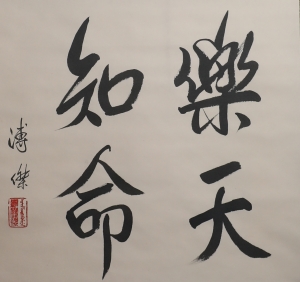 樂天
知命
溥傑